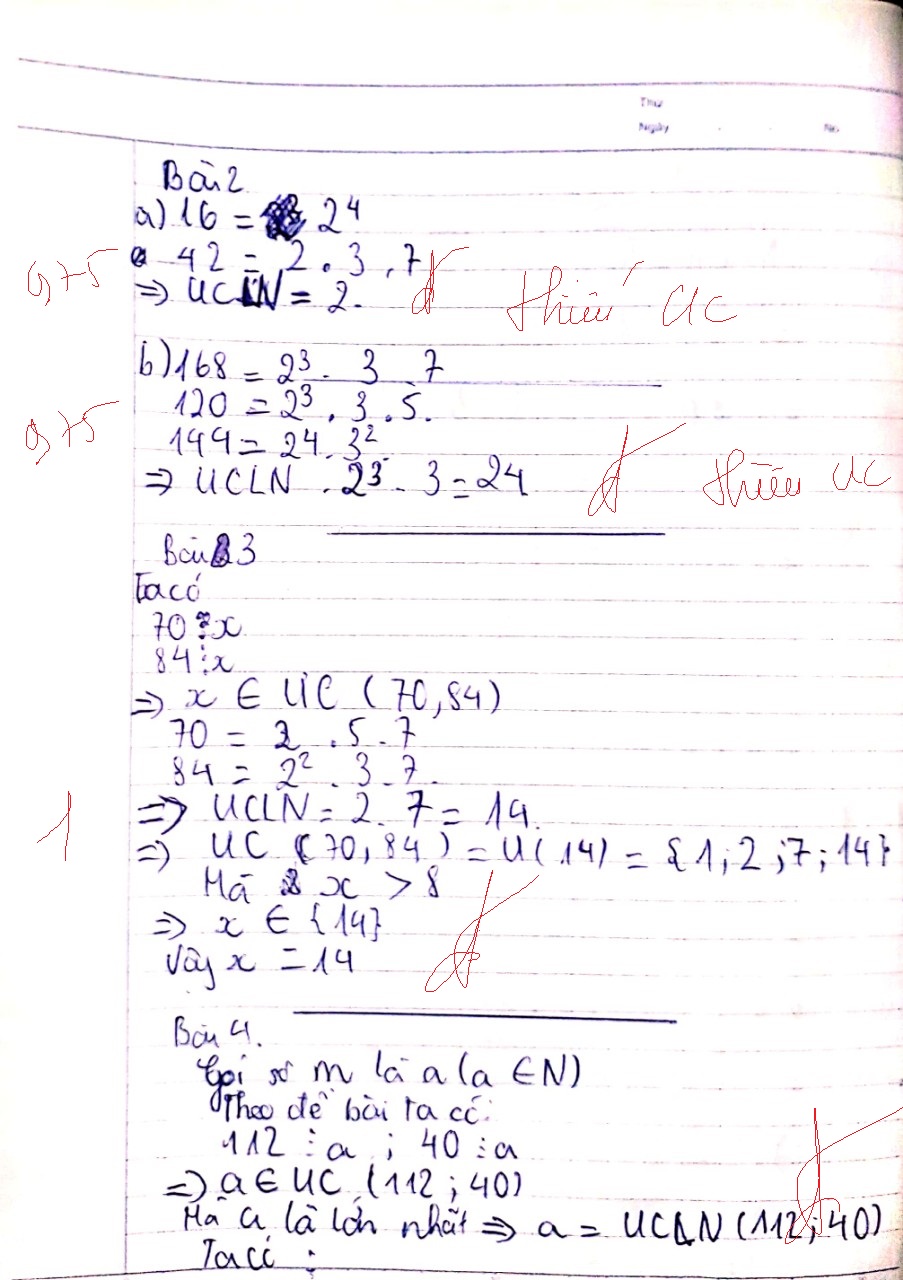 Thứ
Ngày . . No.
Bài 2
a) 16 = 2⁴
42 = 2 . 3 . 7
0,75
=> ƯCLN = 2. đ thiếu ƯC
b) 168 = 2³ . 3 . 7
120 = 2³ . 3 . 5.
0,75
144 = 24 . 3²
=> ƯCLN . 2³ . 3 = 24 đ thiếu ƯC
Bài 3
Ta có
70 ⋮ x
84 ⋮ x
=> x ∈ ƯC (70,84)
70 = 2 . 5 . 7
84 = 2² . 3 . 7.
1
=> ƯCLN = 2 . 7 = 14.
=> ƯC (70, 84) = Ư(14) = {1; 2; 7; 14}
Mà x > 8
=> x ∈ {14}
Vậy x = 14 đ
Bài 4.
Gọi số m là a (a ∈ N)
Theo đề bài ta có:
112 ⋮ a ; 40 ⋮ a
=> a ∈ ƯC (112 ; 40) đ
Mà a là lớn nhất => a = ƯCLN (112; 40)
Ta có :